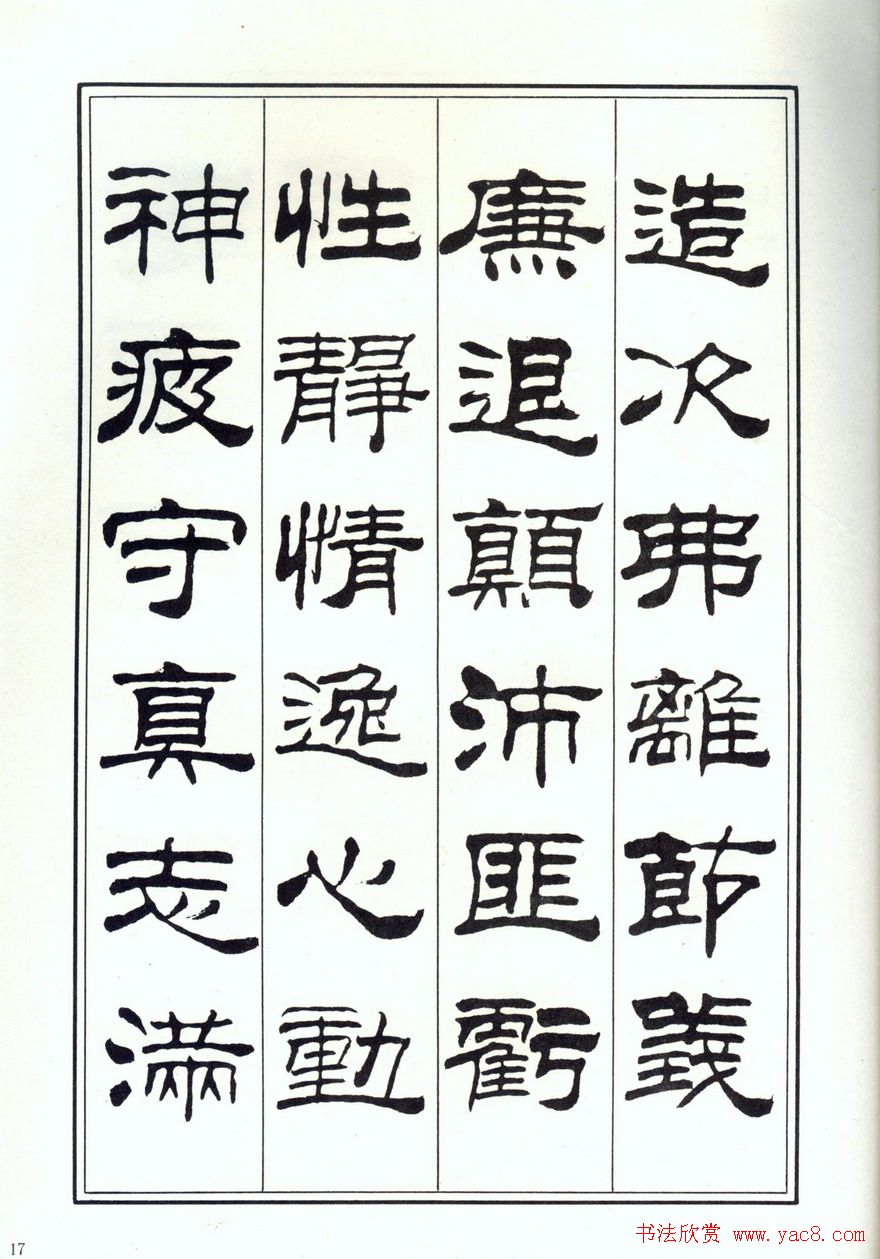 造次弗離節義
廉退顛沛匪虧
性靜情逸心動
神疲守真志滿
17
书法欣赏 www.yac8.com